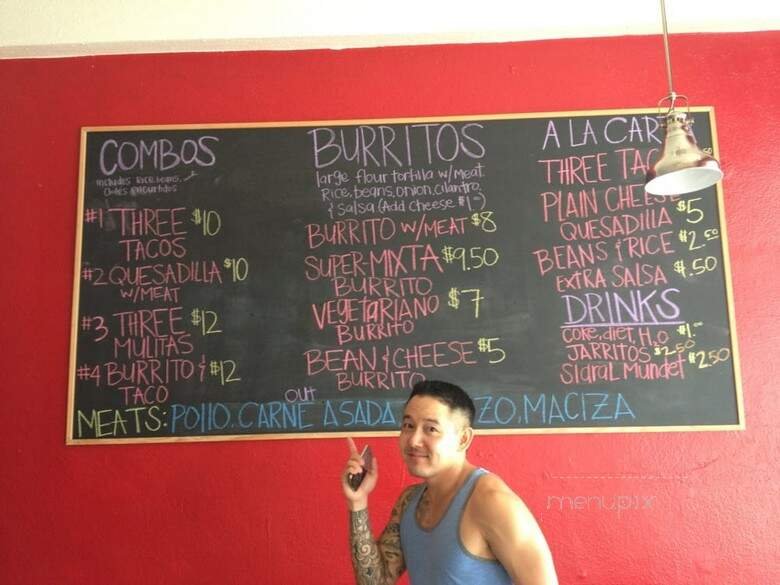 COMBOS
includes Rice, beans,
Chiles
#1 THREE $10
TACOS
#2 QUESADILLA $10
W/MEAT
#3 THREE $12
MULITAS
#4 BURRITO & $12
TACO
BURRITOS
large flour tortilla w/meat
Rice, beans, onion, cilantro,
& Salsa (Add cheese $1.00)
BURRITO W/MEAT $8
SUPER-MIXTA $9.50
BURRITO
VEGETARIANO $7
BURRITO
BEAN & CHEESE $5
BURRITO
A LA CAR
THREE TAC 50
PLAIN CHEESE
QUESADILLA $5
BEANS & RICE $2.50
EXTRA SALSA $.50
DRINKS
COKE, diet, H2O $1.00
JARRITOS $2.50
Sidral Mundet $2.50
OUT
MEATS: POllO, CARNE ASADA ZO, MACIZA
menupix